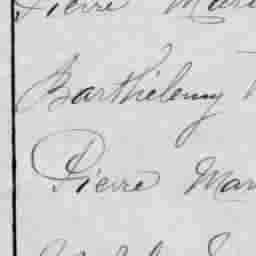 Pierre Mar
Barthelemy
Pierre Mar